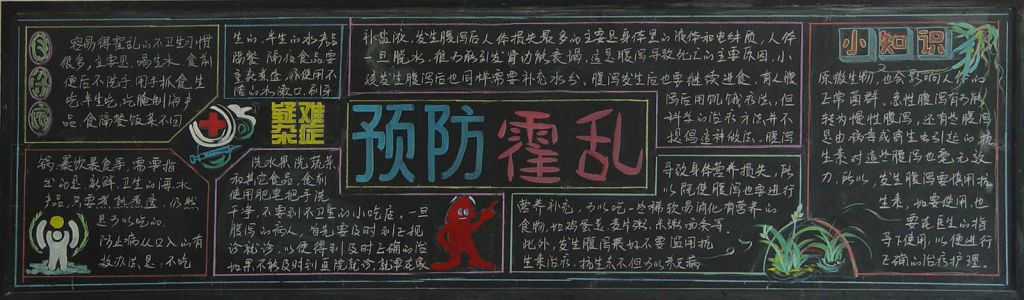 容易得霍乱的不卫生习惯
很多，主要是，喝生水、食前
便后不洗手、用手抓食、生
吃半生吃、吃腌制海产
品、食隔餐饭菜不回
锅、聚饮暴食等，需要指
出的是，新鲜、卫生的海、水
产品，只要煮熟煮透，仍然
是可以吃的。
防止病从口入的有
效办法是：不吃
生的、半生的水产品
隔餐、隔夜食品要
重新煮透，不使用不
洁的水漱口、刷牙
洗水果、洗蔬菜
和其它食品，食前
使用肥皂把手洗
干净，不要到不卫生的小吃店，一旦
腹泻的病人，首先要及时到正规
诊就诊，以便得到及时正确的治
如果不能及时到医院就诊，就要在家
疑难
杂症
预防霍乱
补盐液，发生腹泻后人体损失最多的主要是身体里的液体和电解质，人体
一旦脱水，很容易引发肾功能衰竭，这是腹泻导致死亡的主要原因，小
孩发生腹泻后也同样需要补充水分，腹泻发生后也要继续进食，有人腹
泻后用饥饿疗法，但
科学的治疗方法并不
提倡这种做法，腹泻
导致身体营养损失，所
以既使腹泻也要进行
营养补充，可以吃一些稀软易消化有营养的
食物，如鸡蛋羹、麦片粥、小米粥、面条等，
此外，发生腹泻最好不要滥用抗
生素治疗，抗生素不但可以杀死病
小知识
原微生物，也会影响人体的
正常菌群，急性腹泻有可能
转为慢性腹泻，还有些腹泻
是由病毒或寄生虫引起的，抗
生素对这些腹泻也毫无效
力，所以，发生腹泻要慎用抗
生素，如要使用，也
要在医生的指
导下使用，以便进行
正确的治疗护理。